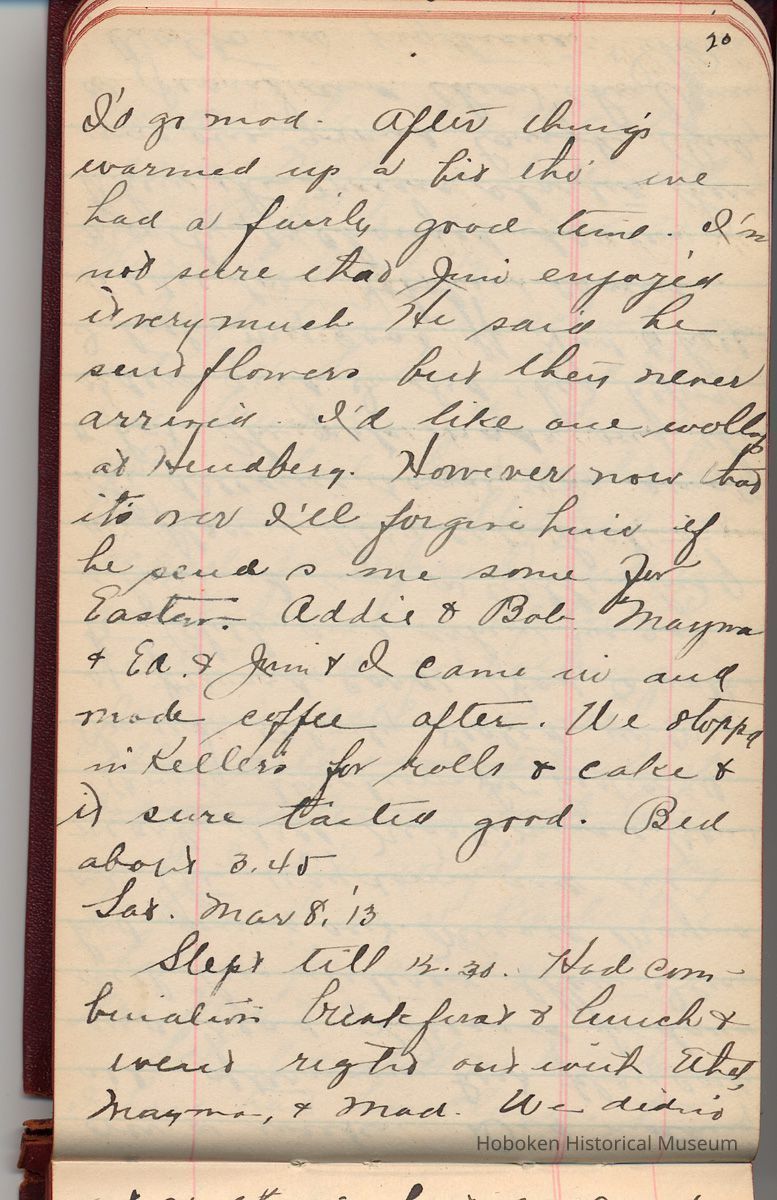 20
I'd go mad. After things
warmed up a bit tho' we
had a fairly good time. I'm
not sure that Jim enjoyed
it very much. He said he
sent flowers but they never
arrived. I'd like one wollop
at Hendberg. However now that
it's over I'll forgive him if
he sends me some for
Easter. Addie & Bob Mayma
& Ed. & Jim & I came in and
made coffee after. We stoppd
in Kellers for rolls & cake &
it sure tasted good. Bed
about 3.45
Sat. Mar 8, '13
Slept till 12.30. Had com-
bination breakfast & lunch &
went right out with Ethel,
Mayma, & Mad. We didn't
Hoboken Historical Museum